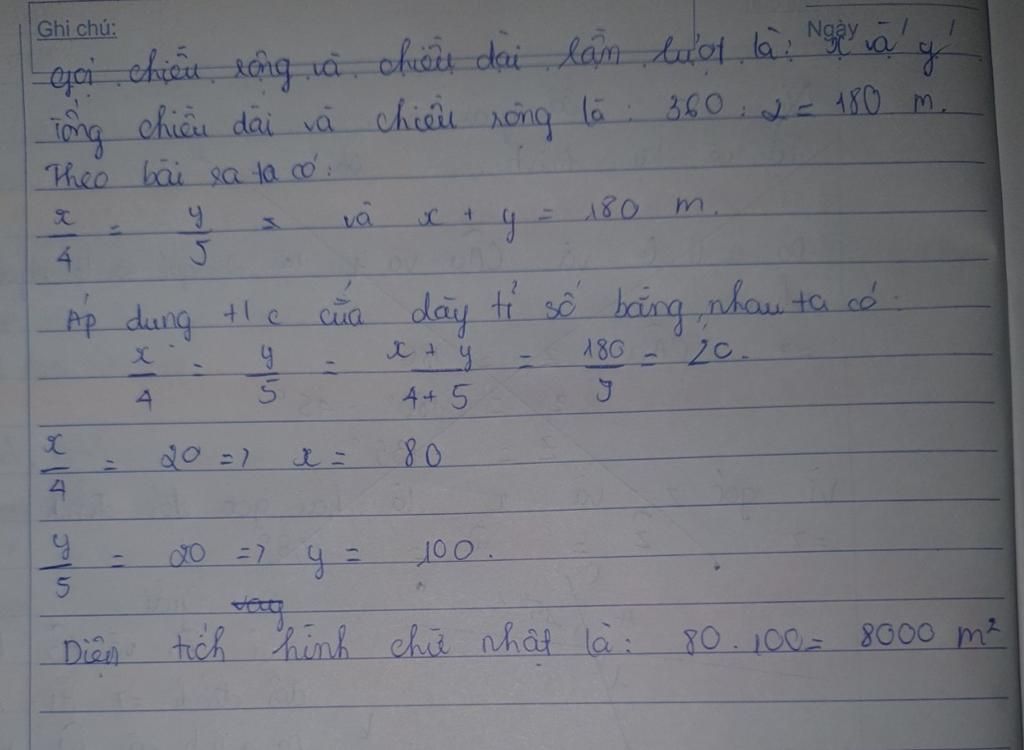 Ghi chú:
Ngày
Gọi chiều rộng và chiều dài lần lượt là: x và y
Tổng chiều dài và chiều rộng là: 360 : 2 = 180 m.
Theo bài ra ta có:
x/4 = y/5 = và x + y = 180 m.
Áp dụng t/c của dãy tỉ số bằng nhau ta có:
x/4 = y/5 = x + y/4 + 5 = 180/9 = 20.
x/4 = 20 => x = 80
y/5 = 20 => y = 100.
Diện tích hình chữ nhật là: 80 . 100 = 8000 m²